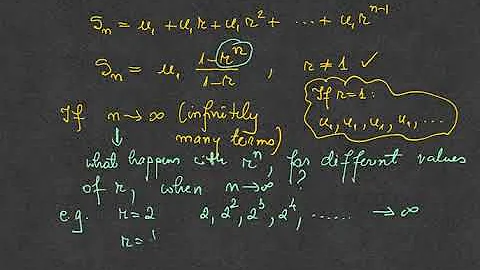 Sn = u₁ + u₁r + u₁r² + ... + u₁rⁿ⁻¹
Sn = u₁ (1-rⁿ)/(1-r) , r ≠ 1 ✓
If r=1:
u₁, u₁, u₁, u₁, ...
If n → ∞ (infinitely
many terms)
↓
what happens with rⁿ, for differnt values
of r, when n→∞ ?
e.g. r=2 2, 2², 2³, 2⁴, ...... → ∞
r=